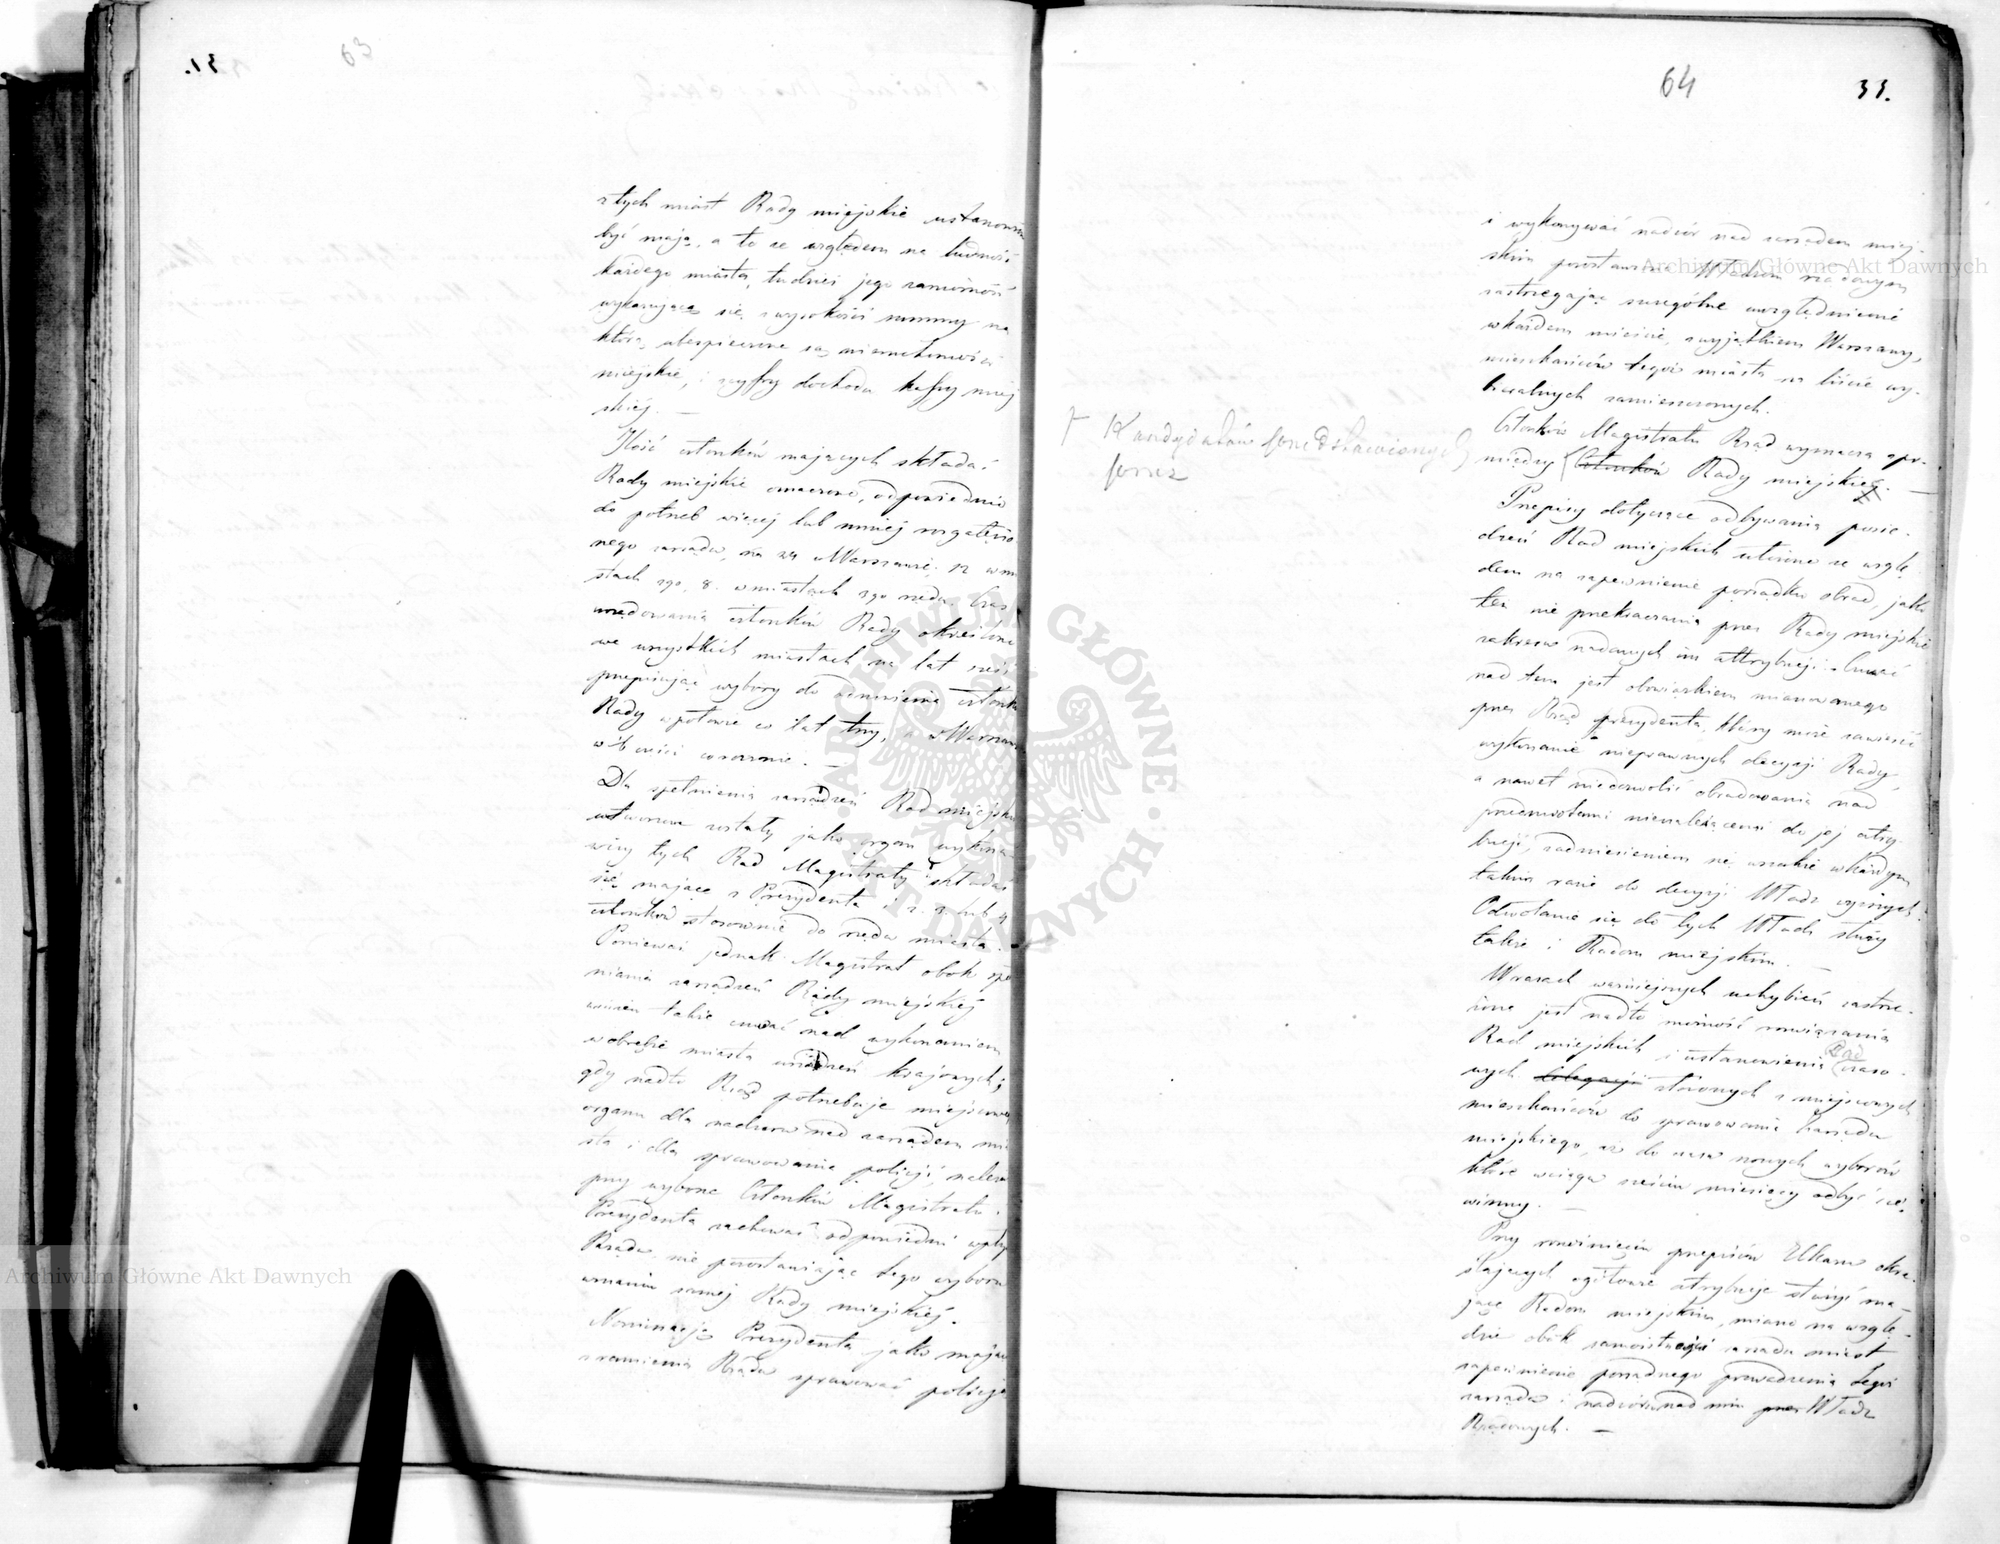 63
z tych miast Rady miejskie ustanowione
być mają, a to ze względem na ludność
każdego miasta, tudzież jego zamożność
wykazującą się z wysokości summy na
którą ubezpieczone są nieruchomości
miejskie, i cyfry dochodu kassy miej
skiéj. —
Ilość członków mających składać
Rady miejskie oznaczono, odpowiednio
do potrzeb więcej lub mniej rozgałęzio
nego zarządu, na 24 w Warszawie, 12 w mia
stach 1go, 8. w miastach 2go rzędu. Czas
urzędowania członków Rady określono
we wszystkich miastach na lat sześć
przepisując wybory do odmienienia członków
Rady w połowie co lat trzy, a w Warszawie
w ⅓ części corocznie. —
Dla spełnienia zarządzeń Rad miejskich
utworzone zostały jako organ wykonaw
czy tych Rad Magistraty składać
się mające z Prezydenta i 2. 3. lub 4
członków stosownie do rzędu miasta.
Ponieważ jednak Magistrat obok speł
niania zarządzeń Rady miejskiéj
winien także czuwać nad wykonaniem
w obrębie miasta urządzeń krajowych;
gdy nadto Rząd potrzebuje miejscowego
organu dla nadzoru nad zarządem mia
sta i dla sprawowania policji, należało
przy wyborze Członków Magistratu i
Prezydenta zachować odpowiedni wpływ
Rządu, nie pozostawiając tego wyboru
uznaniu saméj Rady miejskiéj.
Nominacją Prezydenta jako mającego
z ramienia Rządu sprawować policję
64
33.
i wykonywać nadzór nad zarządem miej-
skim pozostawiono Władzom rządowym
zastrzegając szczególne uwzględnienie
w każdem mieście, z wyjątkiem Warszawy,
mieszkańców tegoż miasta na liście wy-
bieralnych zamieszczonych.
Członków Magistratu Rząd wyznacza z po-
między Członków Rady miejskiej. —
Kandydatów przedstawionych
przez
Przepisy dotyczące odbywania posie-
dzeń Rad miejskich ułożono ze wzglę
dem na zapewnienie porządku obrad, jako
też nie przekraczania przez Rady miejskie
zakresu nadanych im attrybucji. Czuwać
nad tem jest obowiązkiem mianowanego
przez Rząd prezydenta, który może zawiesić
wykonanie nieprawnych decyzji Rady,
a nawet niedozwolić obradowania nad
przedmiotami nienależącemi do jej atry-
bucji, z odniesieniem się wszakże w każdym
takim razie do decyzji Władz wyższych.
Odwołanie się do tych Władz służy
także i Radom miejskim. —
W razach ważniejszych uchybień zastrze-
żone jest nadto możność rozwiązania
Rad miejskich i ustanowienia Rad czaso-
wych delegacji złożonych z miejscowych
mieszkańców do sprawowania Zarządu
miejskiego, aż do czasu nowych wyborów
które w ciągu sześciu miesięcy odbyć się
winny. —
Przy rozwinięciu przepisów Ukazu okre-
ślających ogólowe atrybucje służyć ma-
jące Radom miejskim, miano na wzglę-
dzie obok samoistności zarządu miast
zapewnienie porządnego prowadzenia tegoż
zarządu i nadzoru nad nim przez Władz
Rządowych. —
Archiwum Główne Akt Dawnych
Archiwum Główne Akt Dawnych
ARCHIWUM GŁÓWNE · AKT DAWNYCH ·